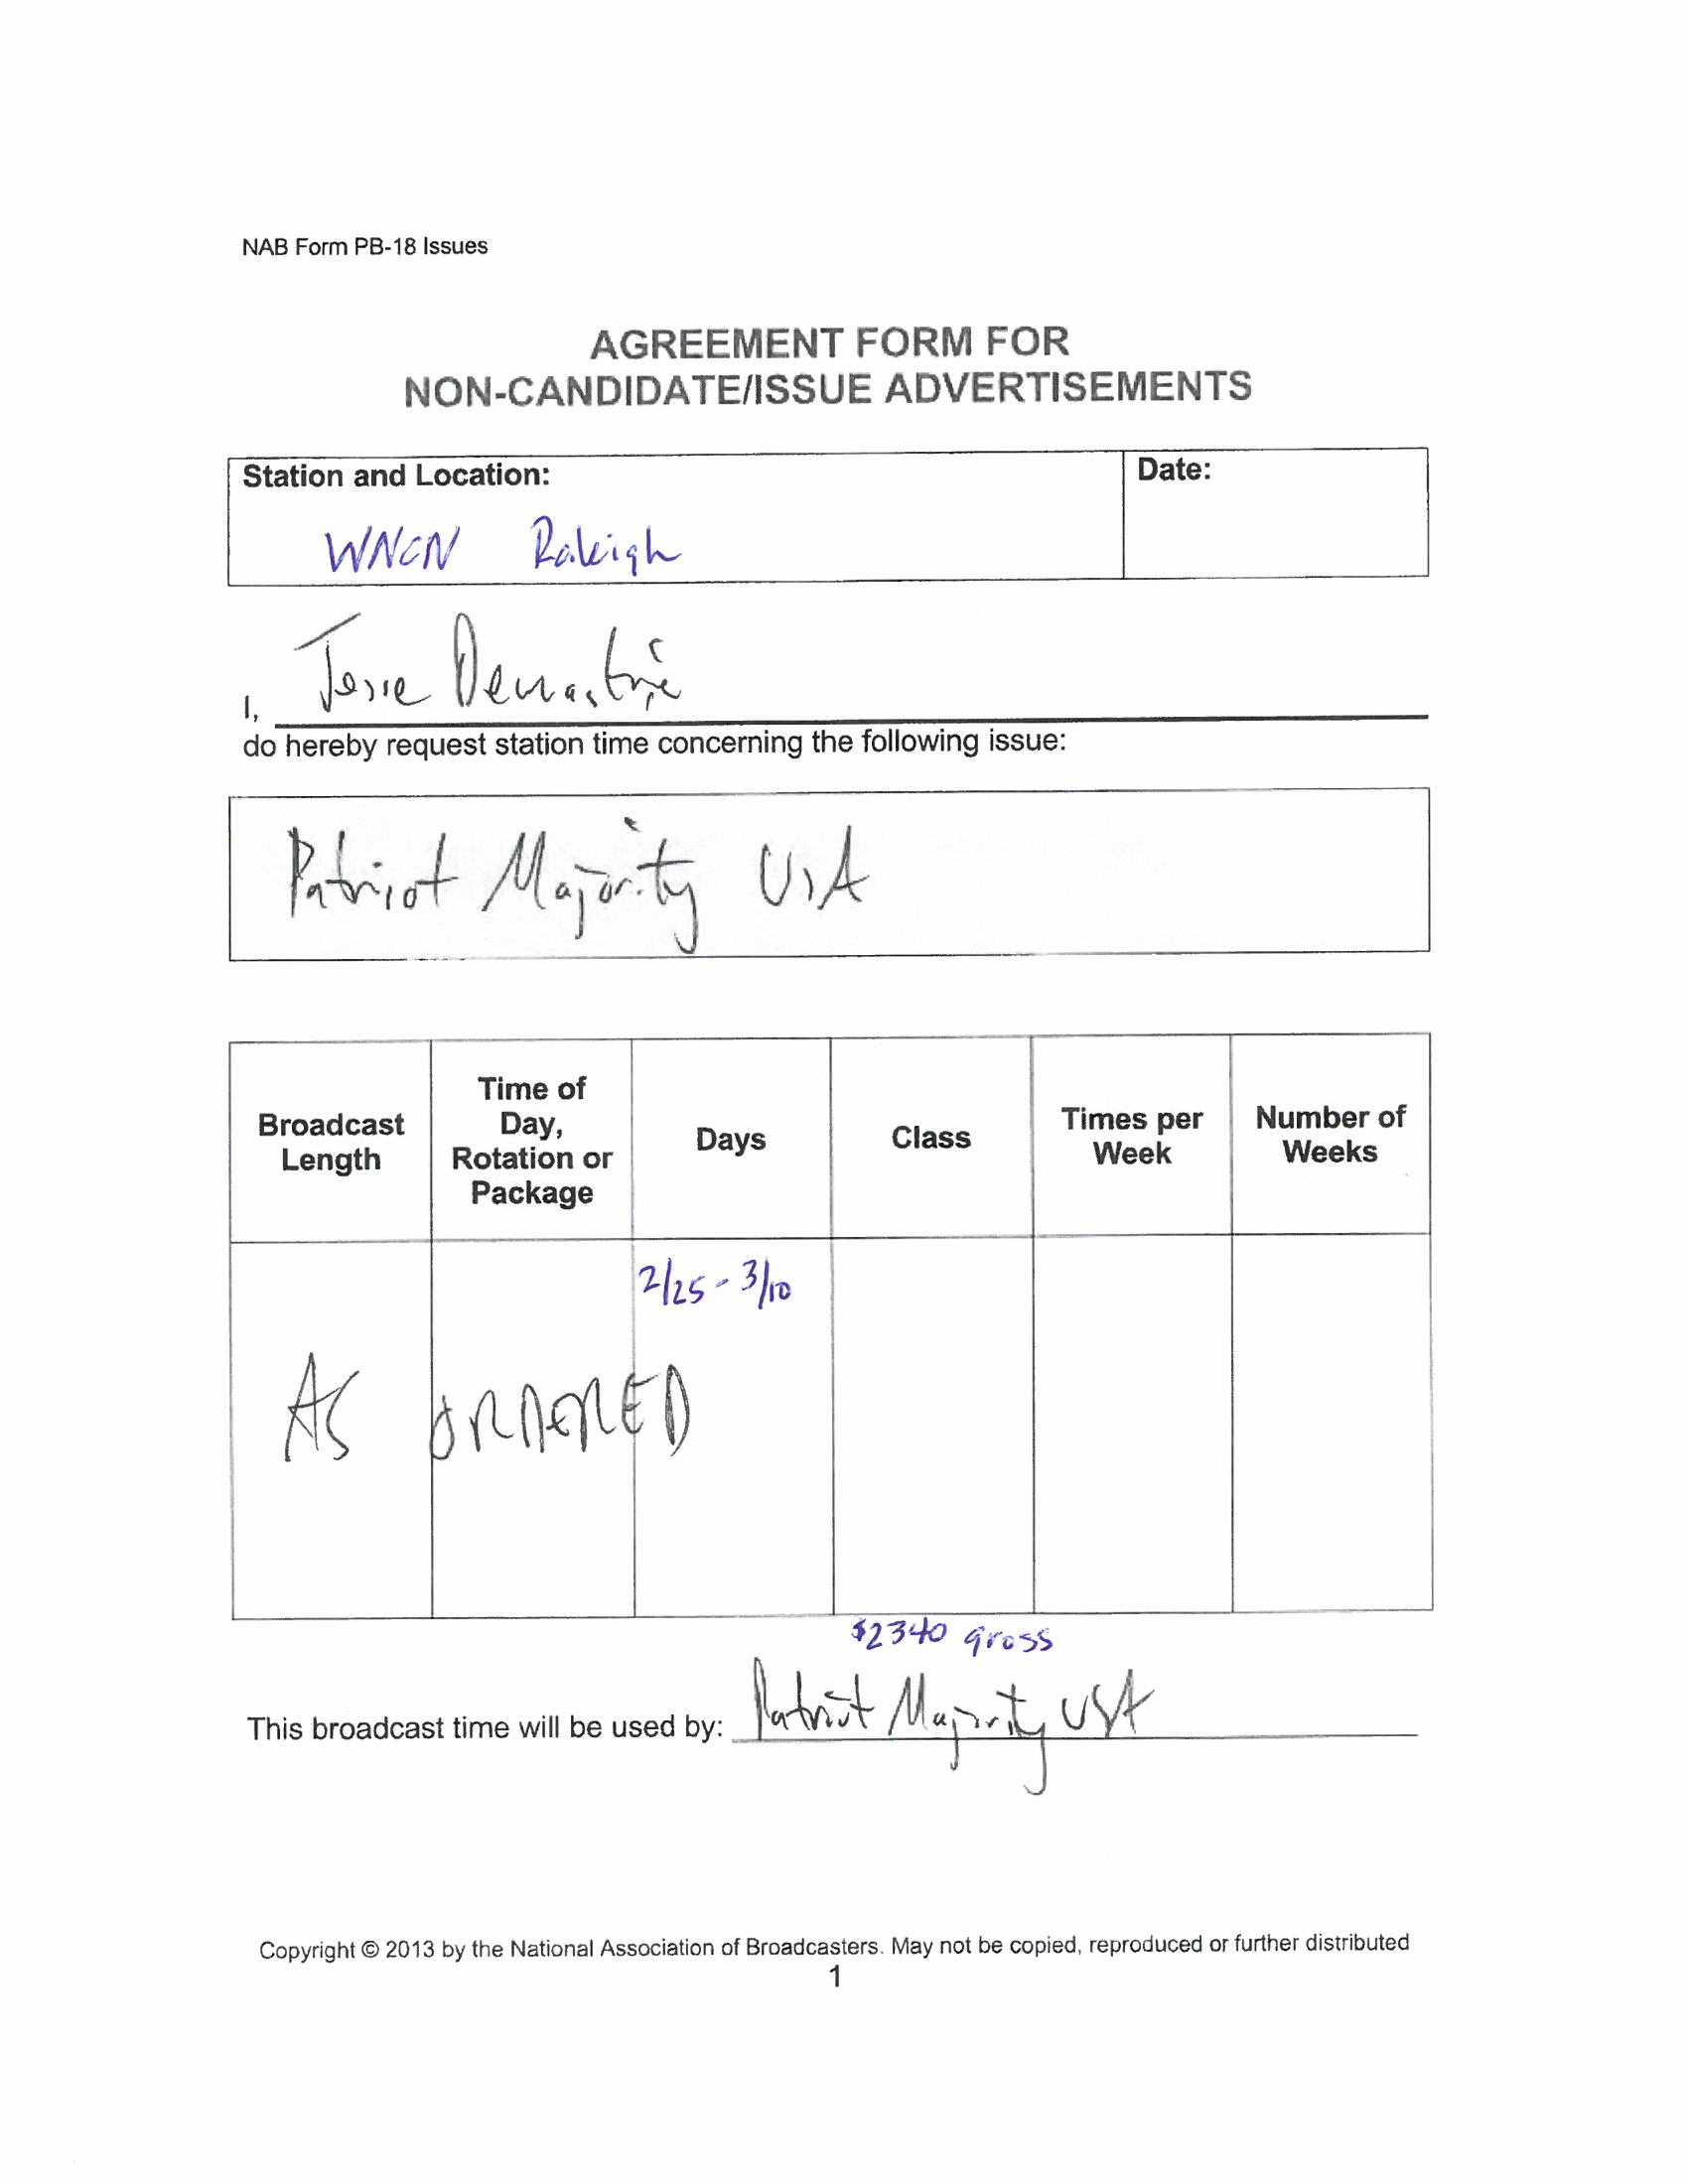 NAB Form PB-18 Issues
AGREEMENT FORM FOR
NON-CANDIDATE/ISSUE ADVERTISEMENTS
Station and Location:
Date:
WNCN Raleigh
I, Jesse Demastrie
do hereby request station time concerning the following issue:
Patriot Majority USA
Broadcast Length
Time of Day, Rotation or Package
Days
Class
Times per Week
Number of Weeks
2/25 - 3/10
AS ORDERED
$2340 gross
This broadcast time will be used by: Patriot Majority USA
Copyright © 2013 by the National Association of Broadcasters. May not be copied, reproduced or further distributed
1